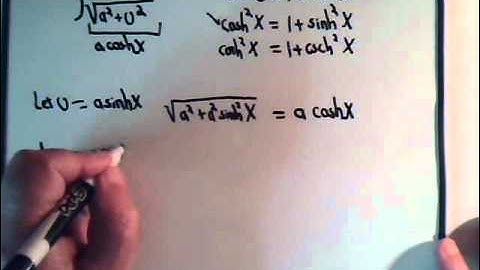 ∫√a²+U²
a coshX
cosh²X = 1 + sinh²X
coth²X = 1 + csch²X
Let U = a sinhX
√a² + a² sinh²X = a coshX